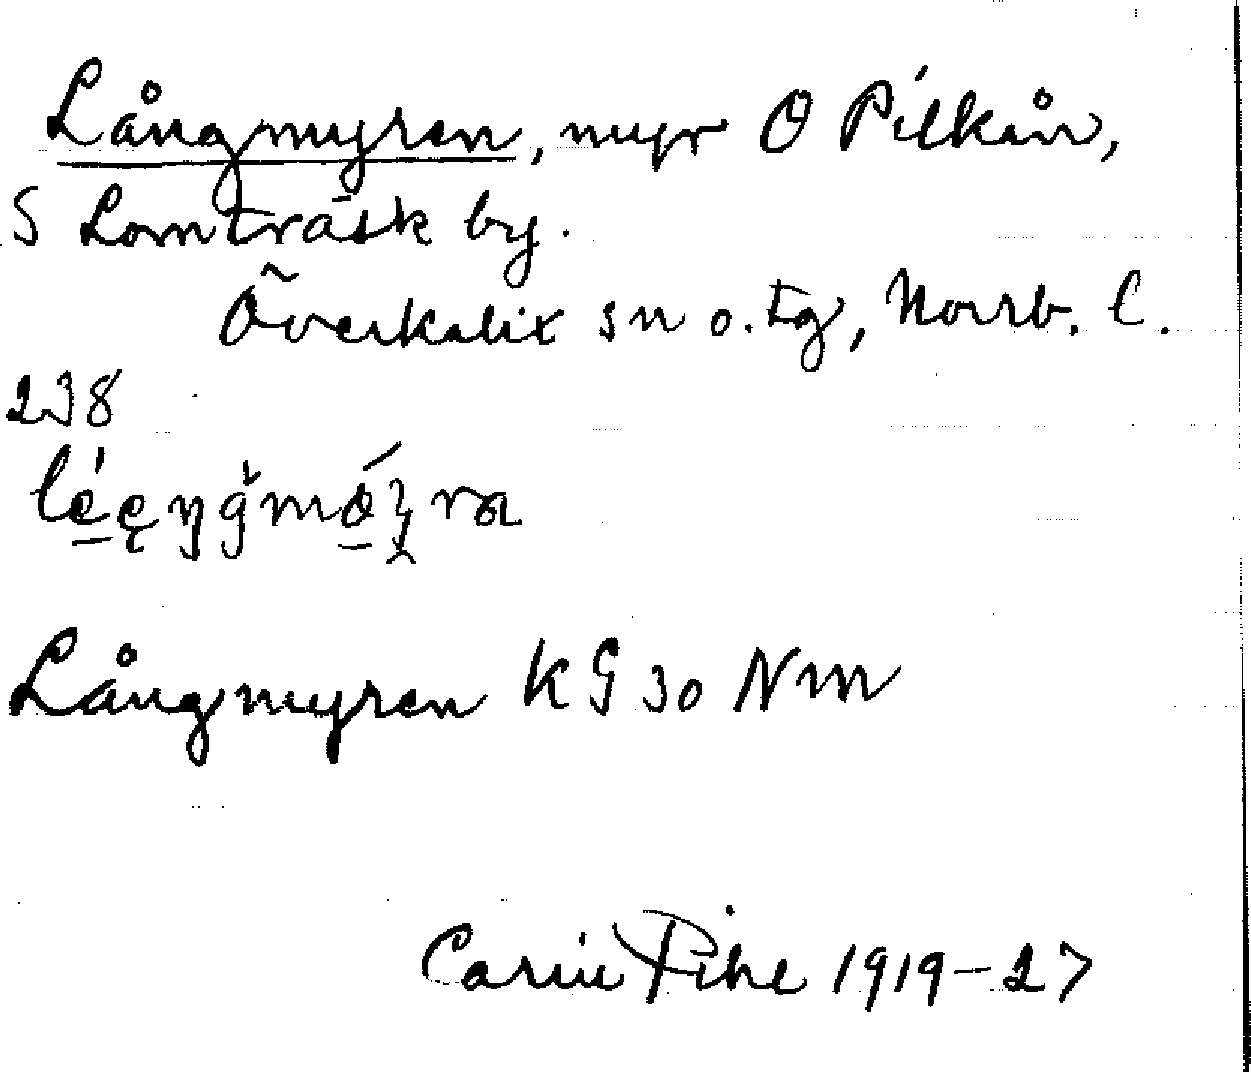 Långmyren, myr O Pilkån,
S Lomträsk by.
Överkalix sn o. tg, Norrb. l.
238
Långmyren KG 30 Nm
Carin Pihl 1919-27